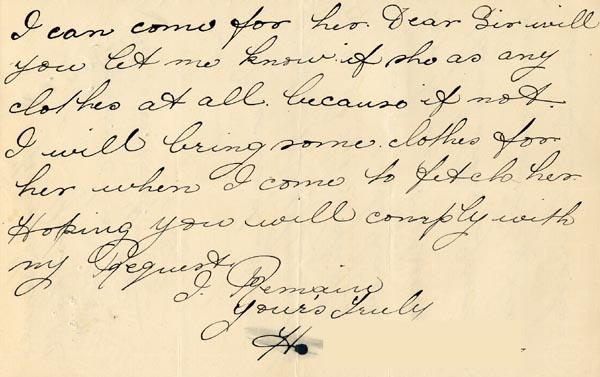 I can come for her. Dear Sir will
you let me know if she as any
clothes at all. because if not.
I will bring some clothes for
her when I come to fetch her.
Hoping you will comply with
my Request
I. Remain
Your's Truly
H.